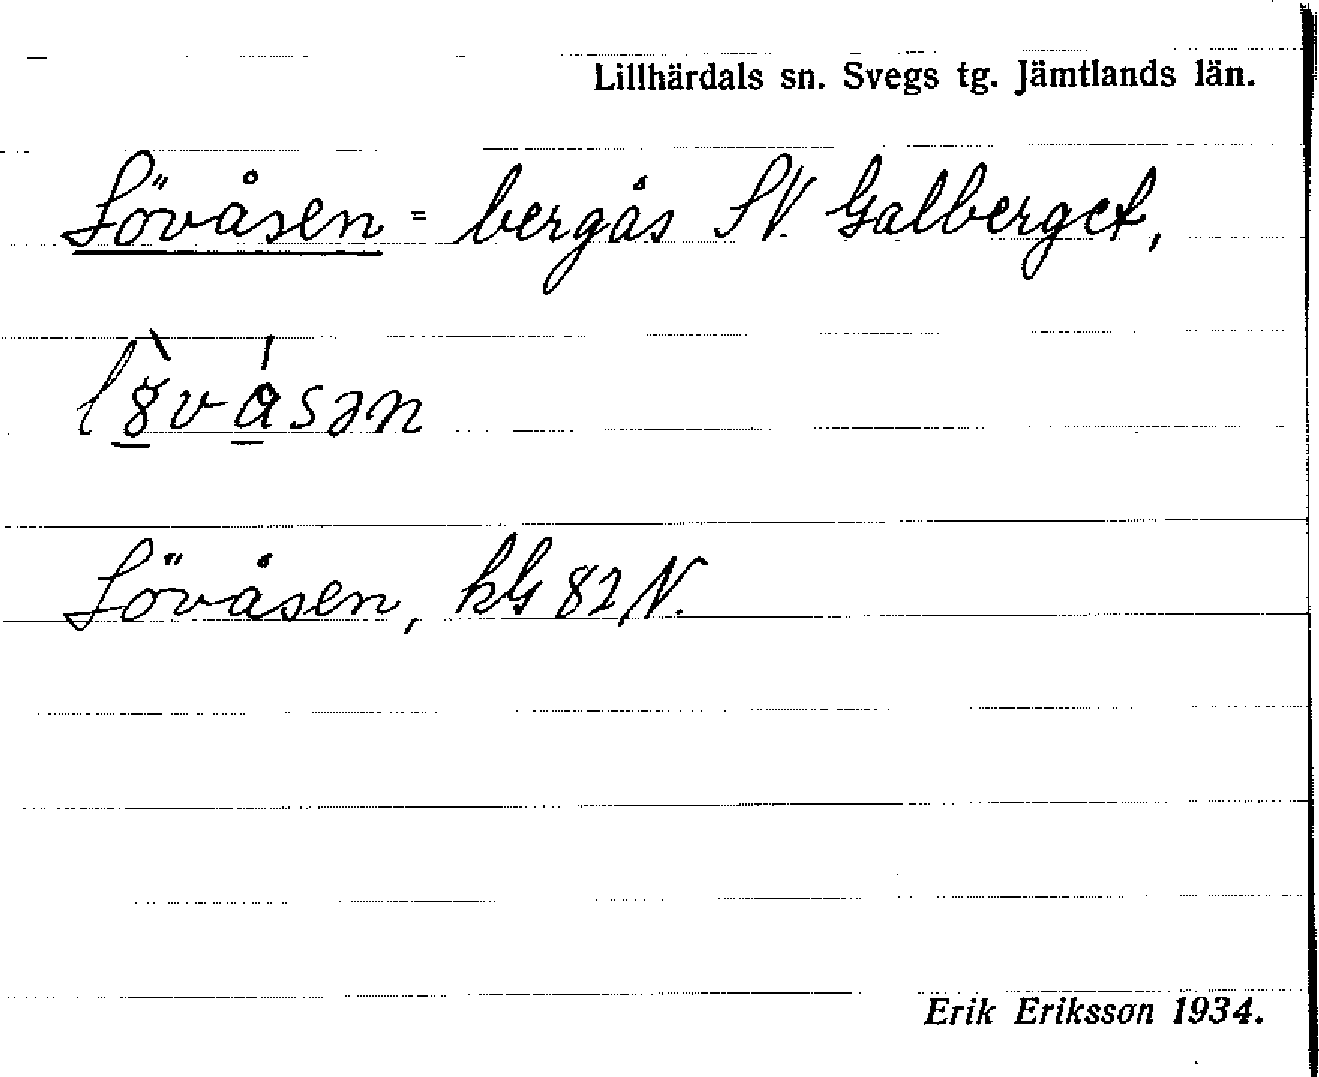 Lillhärdals sn. Svegs tg. Jämtlands län.
Lövåsen = bergås SV. Galberget,
Lövåsen, kG 82 N.
Erik Eriksson 1934.